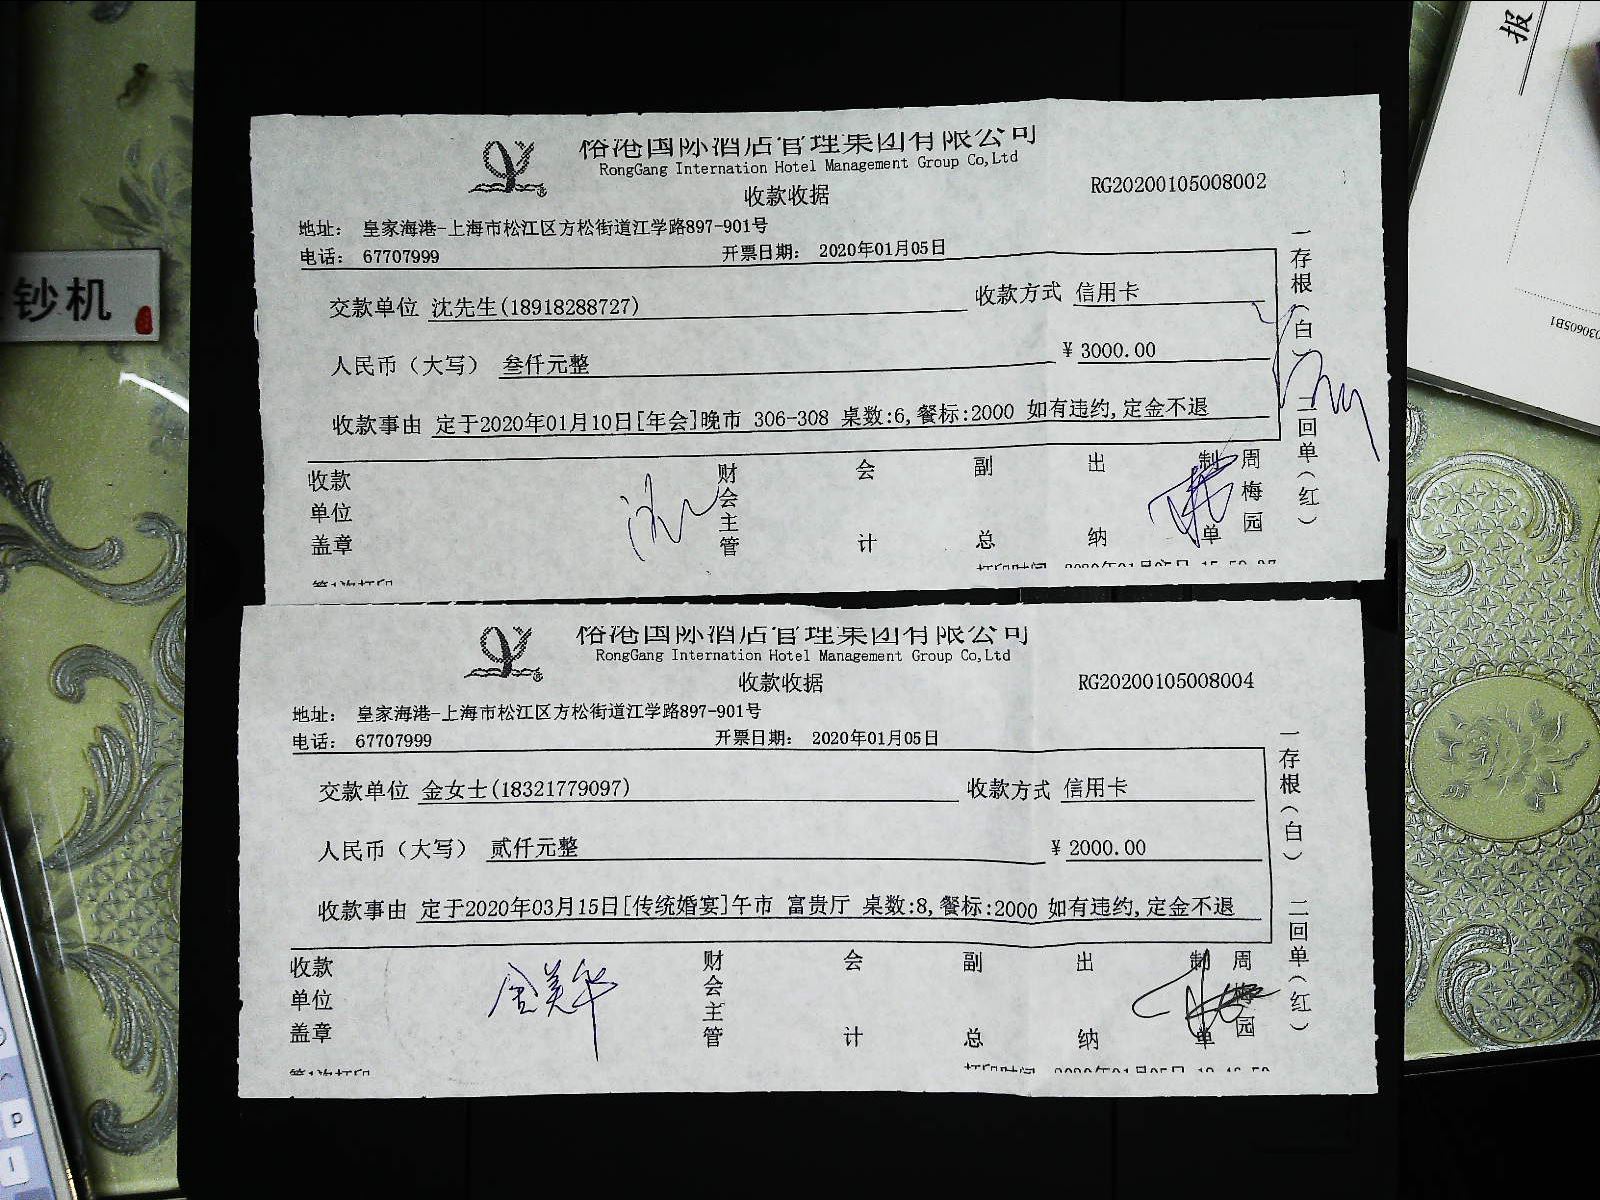 报
030605B1
钞机
俗港国际酒店管理集团有限公司
RongGang Internation Hotel Management Group Co,Ltd
收款收据
RG20200105008002
地址： 皇家海港-上海市松江区方松街道江学路897-901号
电话： 67707999 开票日期： 2020年01月05日
交款单位 沈先生(18918288727) 收款方式 信用卡
人民币（大写） 叁仟元整 ¥ 3000.00
收款事由 定于2020年01月10日[年会]晚市 306-308 桌数:6,餐标:2000 如有违约,定金不退
一存根（白） 二回单（红）
收款单位盖章 财会主管 会计 副总 出纳 制单 周梅园
第1次打印 打印时间 2020年01月05日
俗港国际酒店管理集团有限公司
RongGang Internation Hotel Management Group Co,Ltd
收款收据
RG20200105008004
地址： 皇家海港-上海市松江区方松街道江学路897-901号
电话： 67707999 开票日期： 2020年01月05日
交款单位 金女士(18321779097) 收款方式 信用卡
人民币（大写） 贰仟元整 ¥ 2000.00
收款事由 定于2020年03月15日[传统婚宴]午市 富贵厅 桌数:8,餐标:2000 如有违约,定金不退
一存根（白） 二回单（红）
收款单位盖章 金美华 财会主管 会计 副总 出纳 制单 周梅园
第1次打印 打印时间 2020年01月05日
p